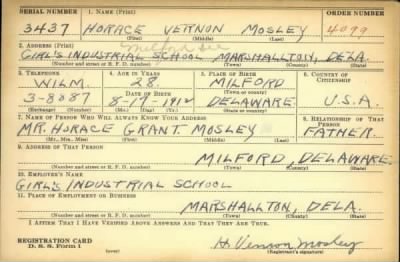 SERIAL NUMBER 1. NAME (Print) ORDER NUMBER
3437 HORACE VERNON MOSLEY 4099
(First) (Middle) (Last)
2. ADDRESS (Print) Milford Del
GIRL'S INDUSTRIAL SCHOOL MARSHALLTON, DELA.
(Number and street or R. F. D. number) (Town) (County) (State)
3. TELEPHONE 4. AGE IN YEARS 5. PLACE OF BIRTH 6. COUNTRY OF CITIZENSHIP
WILM 28 MILFORD
DATE OF BIRTH (Town or county)
3-8087 8-17-1912 DELAWARE U.S.A.
(Exchange) (Number) (Mo.) (Day) (Yr.) (State or country)
7. NAME OF PERSON WHO WILL ALWAYS KNOW YOUR ADDRESS 8. RELATIONSHIP OF THAT PERSON
MR. HORACE GRANT MOSLEY FATHER
(Mr., Mrs., Miss) (First) (Middle) (Last)
9. ADDRESS OF THAT PERSON
MILFORD, DELAWARE
(Number and street or R. F. D. number) (Town) (County) (State)
10. EMPLOYER'S NAME
GIRL'S INDUSTRIAL SCHOOL
11. PLACE OF EMPLOYMENT OR BUSINESS
MARSHALLTON, DELA.
(Number and street or R. F. D. number) (Town) (County) (State)
I AFFIRM THAT I HAVE VERIFIED ABOVE ANSWERS AND THAT THEY ARE TRUE.
REGISTRATION CARD
D. S. S. Form 1 (over) H. Vernon Mosley
(Registrant's signature)